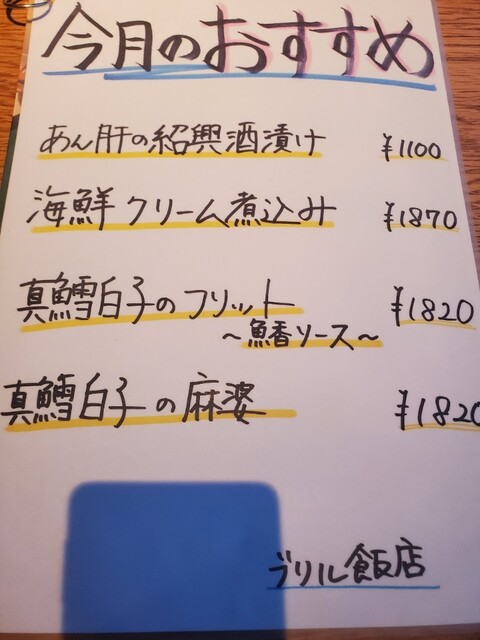 今月のおすすめ
あん肝の紹興酒漬け ¥1100
海鮮クリーム煮込み ¥1870
真鱈白子のフリット ¥1820
〜魚香ソース〜
真鱈白子の麻婆 ¥1820
ブリル飯店